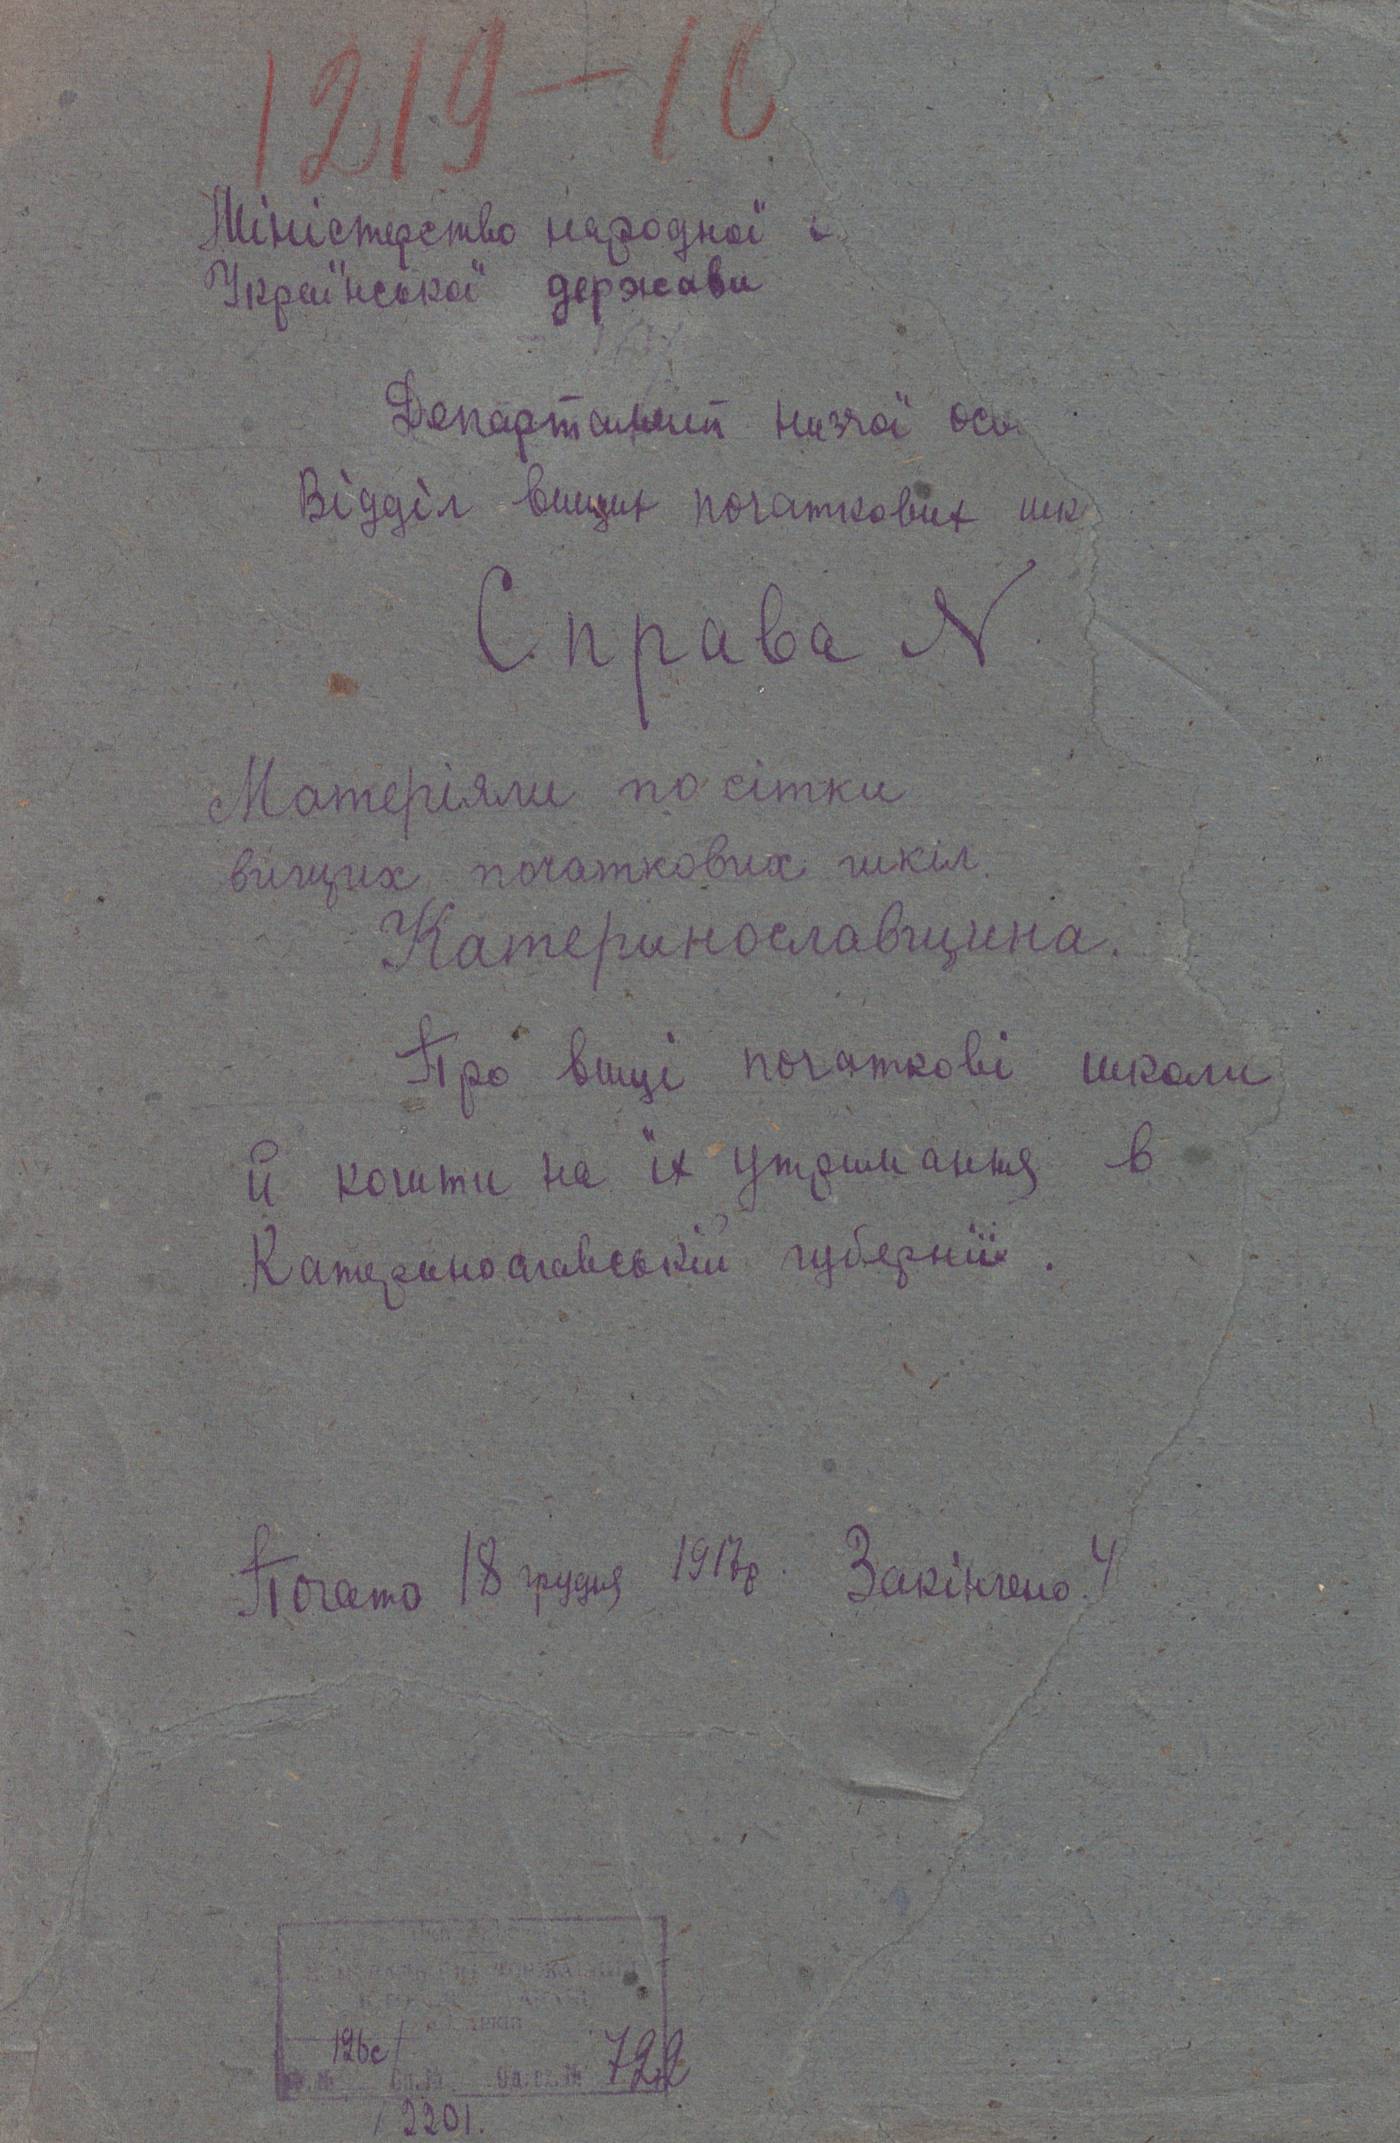 1219-10
Міністерство народної
Української держави
Департамент низчої осв
Відділ вищих початкових шк
Справа N
Матеріяли по сітки
вищих початкових шкіл.
Катеринославщина.
Про вищі початкові школи
й кошти на їх утримання в
Катеринославській губернії.
Почато 18 грудня 1917р. Закінчено
722
2201.